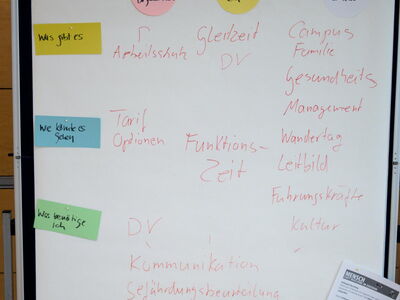 Was gibt es
Arbeitsschutz
Gleitzeit
DV
Campus
Familie
Gesundheits
Management
Wie könnte es
gehen
Tarif
Optionen
Funktions-
Zeit
Wandertag
Leitbild
Führungskräfte
Kultur
Was benötige
ich
DV
Kommunikation
Gefährdungsbeurteilung
MENSCH